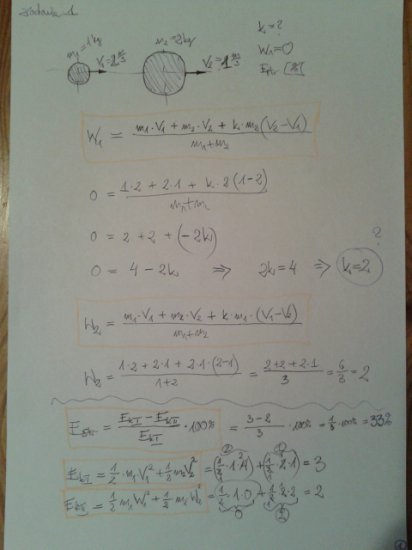 zadanie 1
m₁=1kg m₂=2kg k=?
V₁=2 m/s V₂=1 m/s W₁=0
W₁ = (m₁·V₁ + m₂·V₂ + k·m₂(V₂-V₁))/(m₁+m₂)
0 = (1·2 + 2·1 + k·2(1-2))/(m₁+m₂)
0 = 2 + 2 + (-2k)
?
0 = 4 - 2k ⇒ 2k = 4 ⇒ k=2
W₂ = (m₁·V₁ + m₂·V₂ + k·m₁·(V₁-V₂))/(m₁+m₂)
W₂ = (1·2 + 2·1 + 2·1·(2-1))/(1+2) = (2+2+2·1)/3 = 6/3 = 2
= (EkI - EkII)/EkI · 100% = (3-2)/3 · 100% = 1/3 · 100% = 33%
EkI = 1/2·m₁V₁² + 1/2 m₂V₂² = (1/2·1·4) + (1/2·2·1) = 3
EkII = 1/2 m₁W₁² + 1/2 m₂ W₂² = 2